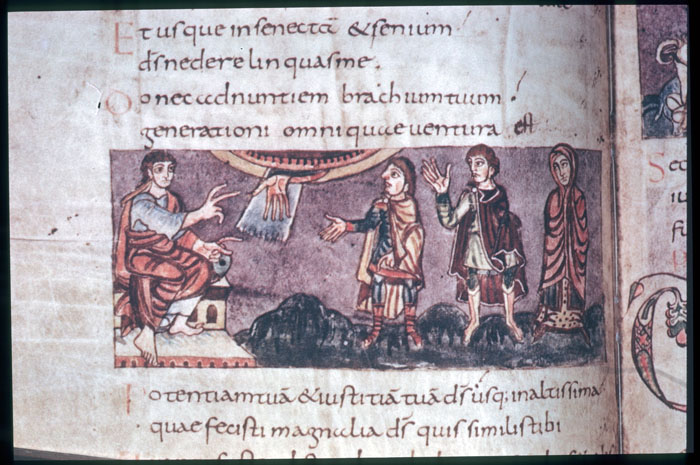 Et usque in senectā & senium
d̄s ne derelinquas me.
Donec adnuntiem brachium tuum
generationi omni quae ventura est
Potentiam tuā & iustitiā tuā d̄s usq; in altissima
quae fecisti magnalia d̄s quis similis tibi